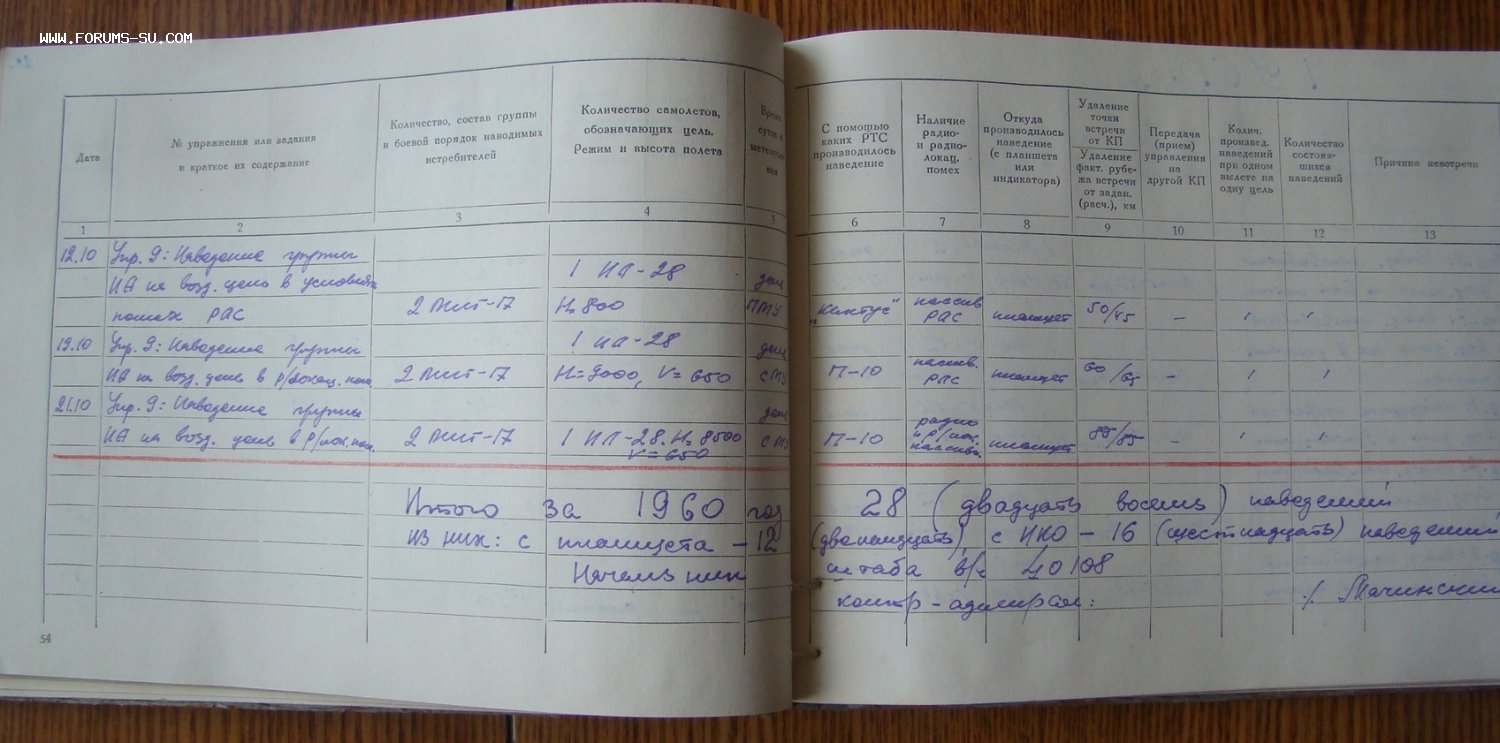 WWW.FORUMS-SU.COM
Дата
№ упражнения или задания
и краткое их содержание
Количество, состав группы
и боевой порядок наводимых
истребителей
Количество самолетов,
обозначающих цель.
Режим и высота полета
Время
суток и
метеоусло-
вия
1 2 3 4 5
12.10 Упр. 9: Наведение группы
ИА на возд. цель в условиях 1 ИЛ-28 день
помех РАС 2 МИГ-17 H=800 ПМУ
19.10 Упр. 9: Наведение группы 1 ИЛ-28 день
ИА на возд. цель в р/локац. пом. 2 МИГ-17 H=9000, V=650 СМУ
21.10 Упр. 9: Наведение группы день
ИА на возд. цель в р/лок. пом. 2 МИГ-17 1 ИЛ-28. H=8500 СМУ
V=650
Итого за 1960 год
из них: с планшета - 12
Начальник
54
С помощью
каких РТС
производилось
наведение
Наличие
радио-
и радио-
локац.
помех
Откуда
производилось
наведение
(с планшета
или
индикатора)
Удаление
точки
встречи
от КП
Удаление
факт. рубе-
жа встречи
от задан.
(расч.), км
Передача
(прием)
управления
на
другой КП
Колич.
произвед.
наведений
при одном
вылете на
одну цель
Количество
состояв-
шихся
наведений
Причина невстречи
6 7 8 9 10 11 12 13
"Кактус" пассив РАС планшет 50/45 - 1 1
П-10 пассив. РАС планшет 60/65 - 1 1
П-10 радио и р/лок. пассивн. планшет 85/85 - 1 1
28 (двадцать восемь) наведений
(двенадцать), с ИКО - 16 (шестнадцать) наведений
штаба в/ч 40108
контр-адмирал: /Мачинский